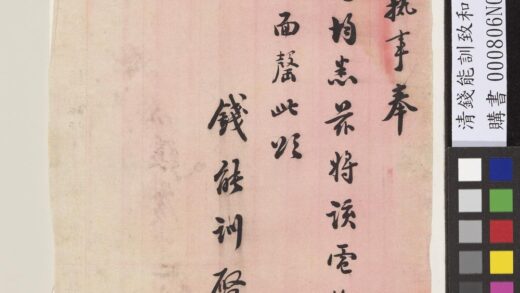 執事奉
均悉茲將該電
面罄此頌
錢能訓啓
清錢能訓致和
購書 000806N0